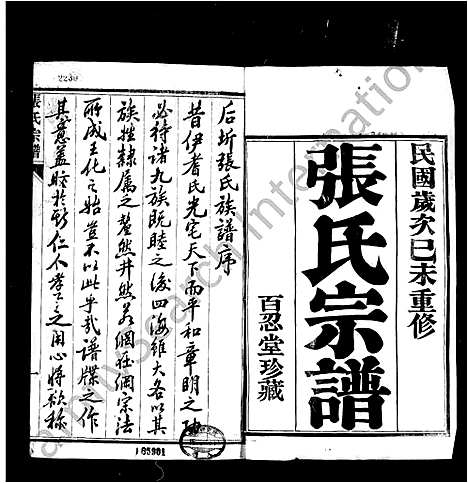 民國歲次己未重修
張氏宗譜
百忍堂珍藏
2230
張氏宗譜
后圻張氏族譜序
昔伊耆氏光宅天下而平和章明之
必待諸九族既睦之後四海雖大各以其
族姓隸屬之釐然井然若網在綱宗法
所成王化之始豈不以此乎哉譜牒之作
其意蓋昉於斯仁人孝子之用心將欲称
165901
FamilySearch International